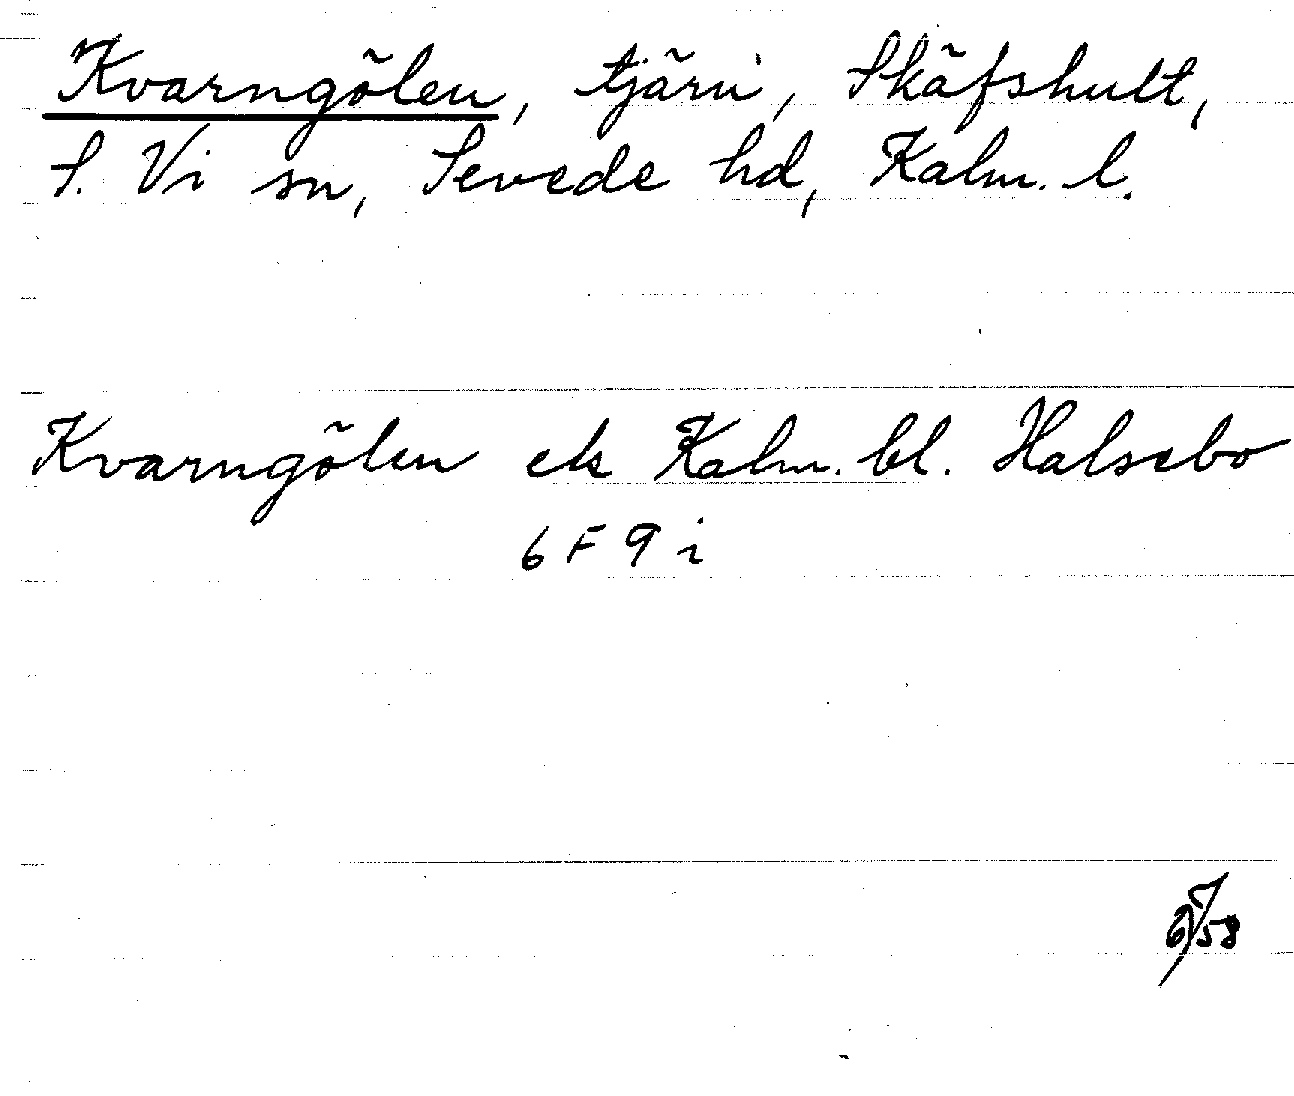 Kvarngölen, tjärn, Skäfshult,
S. Vi sn, Sevede hd, Kalm. l.
Kvarngölen ek Kalm. bl. Halsebo
6 F 9 i